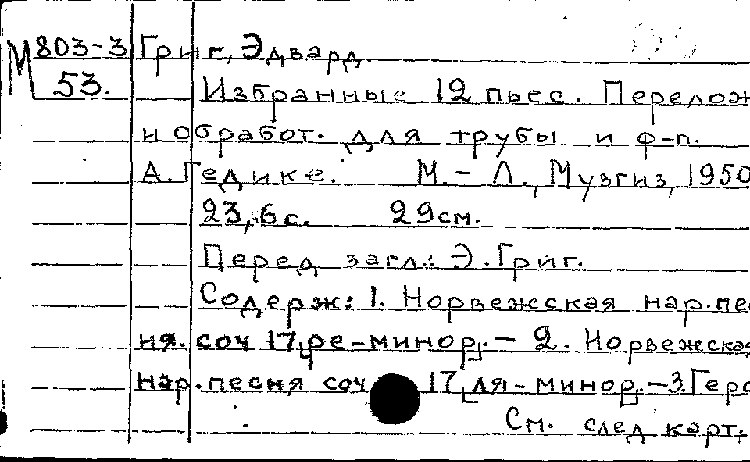 М 803-3 Григ, Эдвард.
53. Избранные 12 пьес. Перелож
и обработ. для трубы и ф-п.
А. Гедике. М.-Л., Музгиз, 1950
23, 6 с. 29см.
Перед загл.: Э. Григ.
Содерж: 1. Норвежская нар. пес
ня. соч 17, ре-минор. - 2. Норвежская
нар. песня соч 17, ля-минор. - 3. Геро
См. след карт.